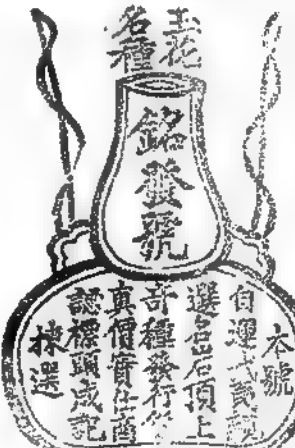 玉花
名種
銘發號
本號
自理武彝
選名岩頂上
奇種發行
真價實仕商
認標頭為記
揀選